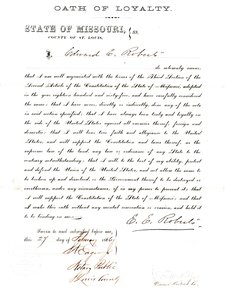 OATH OF LOYALTY.
STATE OF MISSOURI, } ss.
COUNTY OF ST. LOUIS,
I, Edward E. Roberts do solemnly swear
that I am well acquainted with the terms of the Third Section of the
Second Article of the Constitution of the State of Missouri, adopted
in the year eighteen hundred and sixty-five, and have carefully considered
the same; that I have never, directly or indirectly, done any of the acts
in said section specified; that I have always been truly and loyally on
the side of the United States against all enemies thereof, foreign and
domestic; that I will bear true faith and allegiance to the United
States, and will support the Constitution and laws thereof, as the
supreme law of the land, any law or ordinance of any State to the
contrary notwithstanding; that I will, to the best of my ability, protect
and defend the Union of the United States, and not allow the same to
be broken up and dissolved, or the Government thereof to be destroyed or
overthrown, under any circumstances, if in my power to prevent it; that
I will support the Constitution of the State of Missouri; and that I
make this oath without any mental reservation or evasion, and hold it
to be binding on me.
E. E. Roberts
Sworn to and subscribed before me,
this 27 day of 186
Notary Public